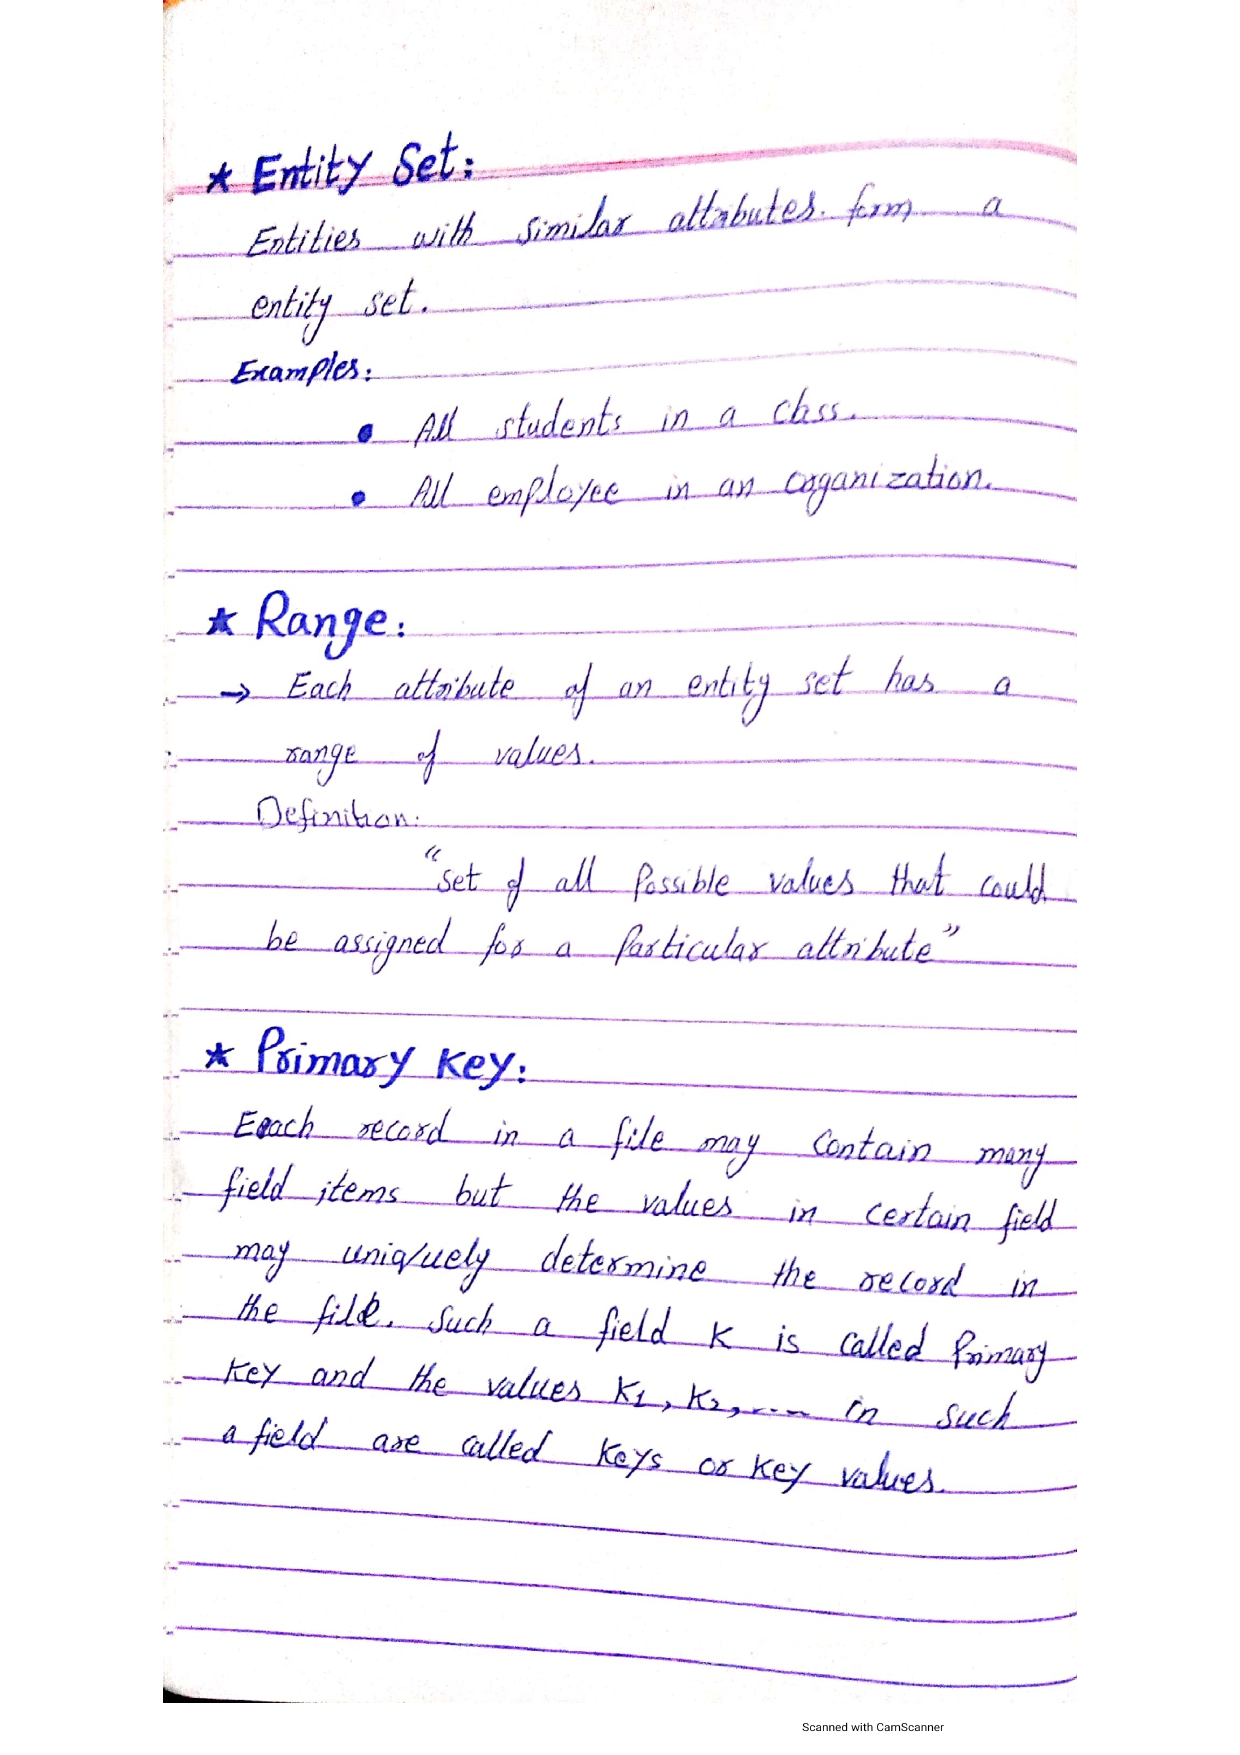 ★ Entity Set:
Entities with similar attributes. form a
entity set.
Examples:
• All students in a class.
• All employee in an organization.
★ Range:
→ Each attribute of an entity set has a
range of values.
Definition:
"set of all Possible values that could
be assigned for a Particular attribute"
★ Primary Key:
Each record in a file may Contain many
field items but the values in certain field
may uniquely determine the record in
the file. Such a field K is called Primary
Key and the values K1, K2,.... in such
a field are called Keys or Key values.
Scanned with CamScanner